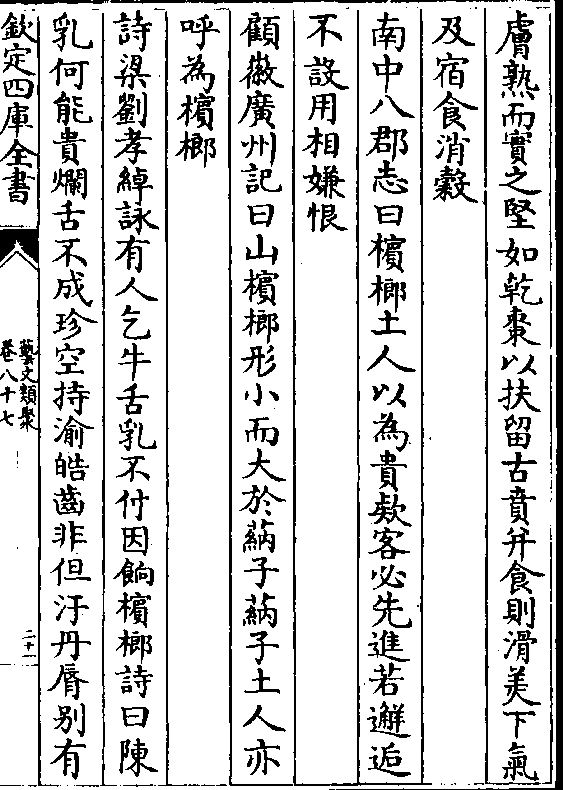 膚熟而實之堅如乾棗以扶留古賁并食則滑美下氣
及宿食消穀
南中八郡志曰檳榔土人以為貴欵客必先進若邂逅
不設用相嫌恨
顧徽廣州記曰山檳榔形小而大於蒳子蒳子土人亦
呼為檳榔
詩梁劉孝綽詠有人乞牛舌乳不付因餉檳榔詩曰陳
乳何能貴爛舌不成珍空持渝皓齒非但汙丹脣别有
欽定四庫全書
藝文類聚
卷八十七
二十一